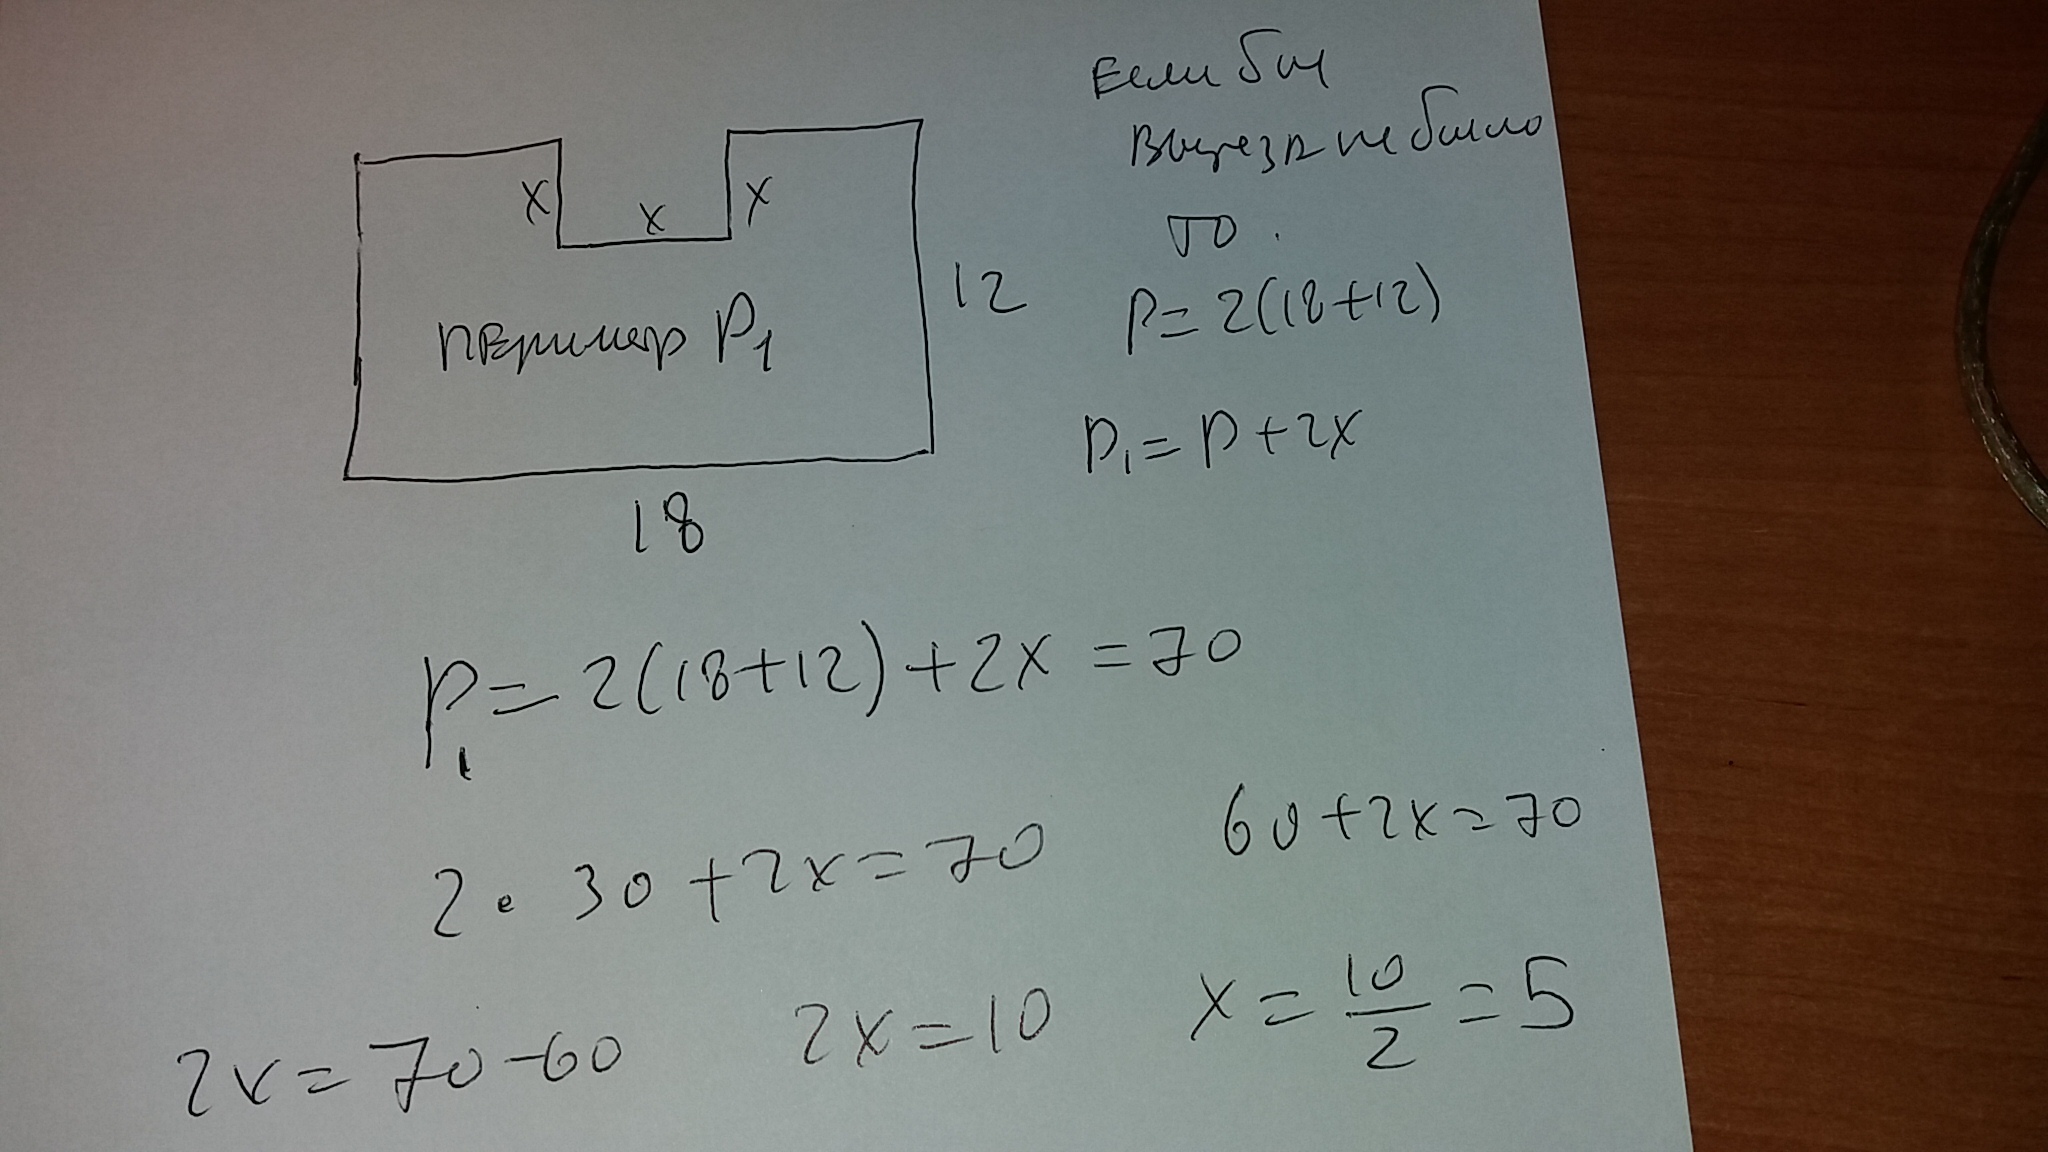 Если бы
выреза не было
то.
x x x
12
P=2(18+12)
периметр P₁
P₁=P+2x
18
P₁=2(18+12)+2x=70
2·30+2x=70
60+2x=70
2x=70-60
2x=10
x=10/2=5